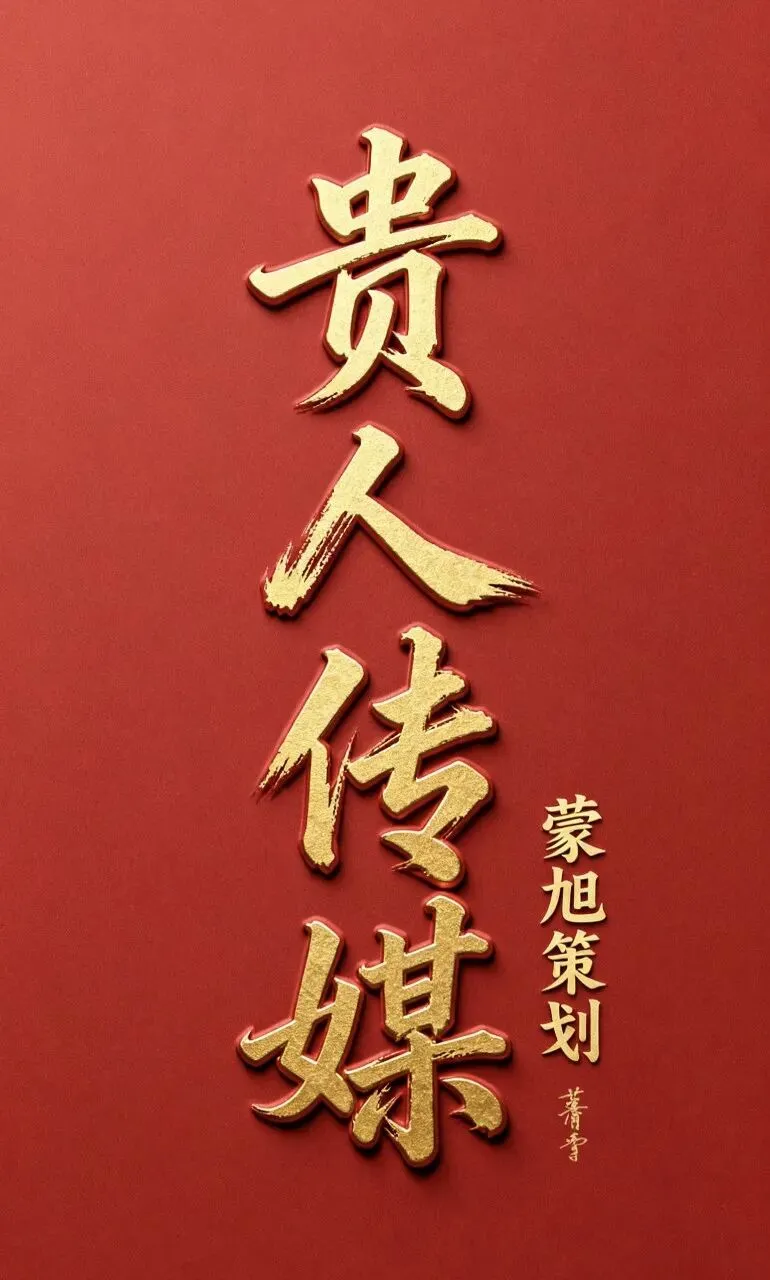 贵人传媒
蒙旭策划